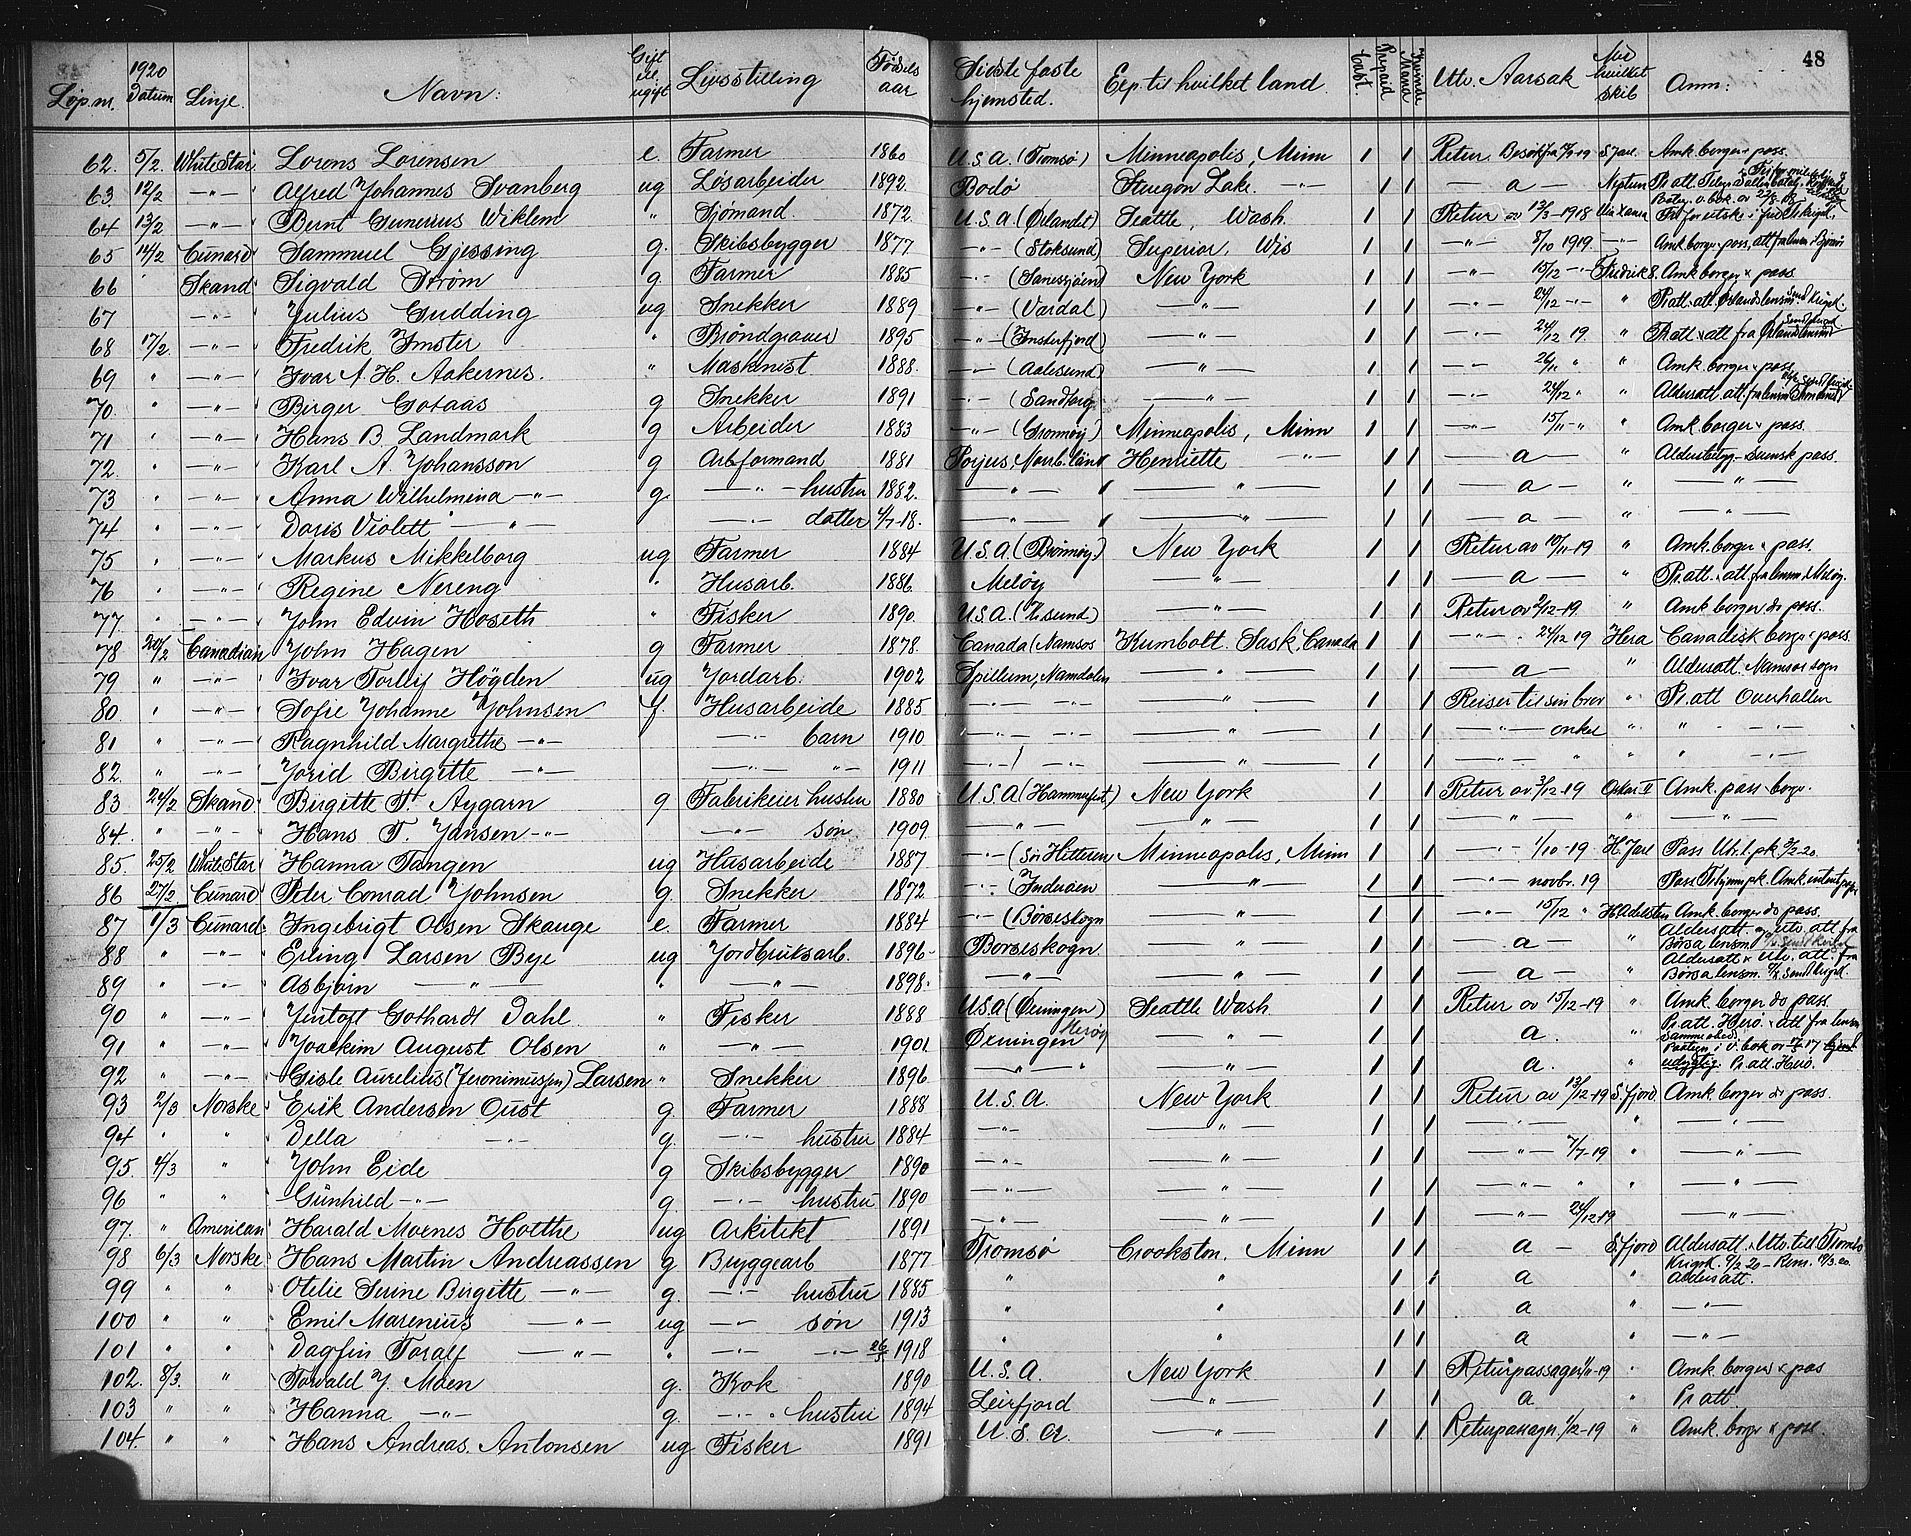 48
Løp.nr. 1920 Datum Linje. Navn: Gift ell. ugift Livsstilling Fødsels aar Sidste faste hjemsted. Exp. til hvilket land. Cash. Prepaid Mand Kvinde Utv. Aarsak Med hvilket skib Anm:
62. 5/2. White Star Lorens Lorensen e. Farmer 1860 U.S.A. (Tromsø) Minneapolis, Minn 1 1 Retur. Besøk fra 19 S. Jarl. Amk. borger pass.
63. 12/2 —"— Alfred Johannes Svanberg ug Løsarbeider 1892. Bodø Sturgon Lake. —"— 1 1 —a— Neptun Pr. att.
64 13/2 —"— Bernt Gunerius Wiklem " Sjømand. 1872. U.S.A. (Ørlandet) Seattle, Wash. 1 1 Retur av 13/3-1918
65 14/2 Cunard Sammuel Gjessing g. Skibsbygger 1877. —"— (Stoksund) Superior, Wis 1 1 —"— 8/10 1919. —"— Amk borger pass, att fra
66 " Skand. Sigvald Strøm g. Farmer 1885 —"— (Sanesjøen) New York 1 1 —"— 15/12 —"— Fredrik 8. Amk. borger & pass
67 —"— Julius Gudding ug Snekker 1889 —"— (Værdal) —"— 1 1 —"— 24/12 —"— " Pr. att. att. Ørlandslensm.
68 17/2. —"— Fredrik Imster " Brøndgraver 1895 —"— (Imsterfjord) —"— 1 1 —"— 24/12 19. " Pr. att & att fra
69 " —"— Ivar A. H. Aakernes. " Maskinist 1888. —"— (Aalesund) —"— 1 1 —"— 26/11 " " Amk. borger & pass
70. " —"— Birger Gotaas g Snekker 1891 —"— (Sandberg —"— 1 1 —"— 24/12 " " Aldersatt. att. fra lensm
71 " —"— Hans B. Landmark g Arbeider 1883 —"— (Grønnøy) Minneapolis, Minn 1 1 —"— 15/11 —"— " Amk. borger & pass.
72. " —"— Karl A. Johansson g Arbformand 1881 Porjus, Norrb. länd Henriette —"— 1 1 —a— " Aldersbevg. Svensk pass.
73 " —"— Anna Wilhelmina —"— g. —"— hustru 1882. —"— —"— 1 1 —a— " —"—
74 " —"— Doris Violett —"— —"— datter 4/7-18. —"— —"— 1 1 —a— " —"—
75 " —"— Markus Mikkelborg ug Farmer 1884 U.S.A. (Brønnøy) New York 1 1 Retur av 10/11-19 " Amk. borger & pass.
76 " —"— Regine Nereng " Husarb. 1886. Meløy —"— 1 1 —a— " Pr. att. att. fra lensm. i Meløy.
77. " —"— John Edvin Hoseth " Fisker 1890. U.S.A. (Kr.sund) —"— 1 1 Retur av 2/12-19. " Amk borger & pass.
78 20/2 Canadian John Hagen g Farmer 1878. Canada (Namsos Humbolt. Sask. Canada 1 1 —"— 24/12 19 Hera Canadisk borger & pass
79 " —"— Ivar Torleif Høgden ug Jordarb. 1902 Spillum, Namdalen —"— 1 1 —a— " Aldersatt. Namsos sogn
80 " —"— Sofie Johanne Johnsen f. Husarbeide 1885 —"— —"— —"— 1 1 Reiser til sin bror " Pr. att Overhallen
81 " —"— Ragnhild Margrethe —"— —"— barn 1910 —"— —"— —"— 1 1 —"— onkel " " —"—
82. " —"— Jorid Birgitte —"— —"— " 1911 —"— —"— 1 1 —"— " " —"—
83 24/2 Skand. Birgitte Aygarn g Fabrikeier hustru 1880 U.S.A (Hammerfest) New York 1 1 Retur av 3/12-19 Oskar II Amk. pass borger.
84. " —"— Hans T. Jansen —"— —"— søn 1909. —"— —"— 1 1 —"— " —"—
85. 25/2 White Star Hanna Tangen ug Husarbeide 1887 —"— (Sør Hitteren Minneapolis, Minn 1 1 —"— 1/10-19 H. Jarl Pass
86 27/2 Cunard Peder Conrad Johnsen g. Snekker 1872 —"— (Inderøen —"— 1 1 —"— novbr. 19 Pass
87 1/3 Cunard. Ingebrigt Olsen Skauge e. Farmer 1884 —"— (Børseskogn —"— 1 1 —"— 15/12 " Amk. borger & pass.
88 " —"— Erling Larsen Bye ug Jordbruksarb. 1896 Børseskogn —"— 1 1 —a— " Aldersatt. og Utv. att. fra Børsa lensm.
89 " —"— Asbjørn —"— " —"— 1898. —"— —"— 1 1 —a— " Aldersatt & Utv. att. fra Børsa lensm.
90 " —"— Jentoft Gothardt Dahl " Fisker 1888 U.S.A (Ørningen) Seattle Wash 1 1 Retur av 15/12-19 " Amk borger & pass
91 " —"— Joackim August Olsen " —"— 1901 Ørningen Herøy —"— 1 1 a. " Pr. att. Herø. & att fra lensm sammested.
92 " —"— Gisle Aurelius (Jeronimussen) Larsen " Snekker 1896 —"— —"— 1 1 a. " Pr. att. Herø.
93 2/3 Norske Erik Andersen Oust g. Farmer 1888 U.S.A. New York 1 1 Retur av 13/12-19 S. fjord. Amk. borger & pass.
94 " " Della —"— g. —"— hustru 1884 —"— —"— 1 1 —"— " —"—
95. 4/3 " John Eide g Skibsbygger 1890 —"— —"— 1 1 —"— 7/7-19 " —"—
96 " " Gunhild —"— g. —"— hustru 1890 —"— —"— 1 1 —"— " " —"—
97. " American Harald Moenes Hotthe ug Arkitekt 1891 —"— —"— 1 1 —"— 24/12-19 —"—
98 6/3 Norske Hans Martin Andreassen g Byggearb 1877 Tromsø Crookston. Minn 1 1 a — S. fjord Aldersatt. Utv. till. Tromsø
99 " " Otelie Serine Birgitte —"— g. —"— hustru 1885 " " 1 1 a " Aldersatt.
100 " " Emil Marenius —"— ug —"— søn 1913 " " 1 1 a " —"—
101 " " Dagfin Toralf —"— " —"— —"— 26/5 1918 " " 1 1 a " —"—
102. 8/3. " Torvald J. Moen g. Kok 1890 U.S.A. New York 1 1 Returpassager 1/11-19 " Amk borger & pas
103 " " Hanna —"— g. —"— hustru 1894 Leirfjord —"— 1 1 a " Pr att
104. " " Hans Andreas Antonsen ug Fisker 1891 U.S.A. —"— 1 1 Returpassager. 1/12-19 " Amk. borger & pass.